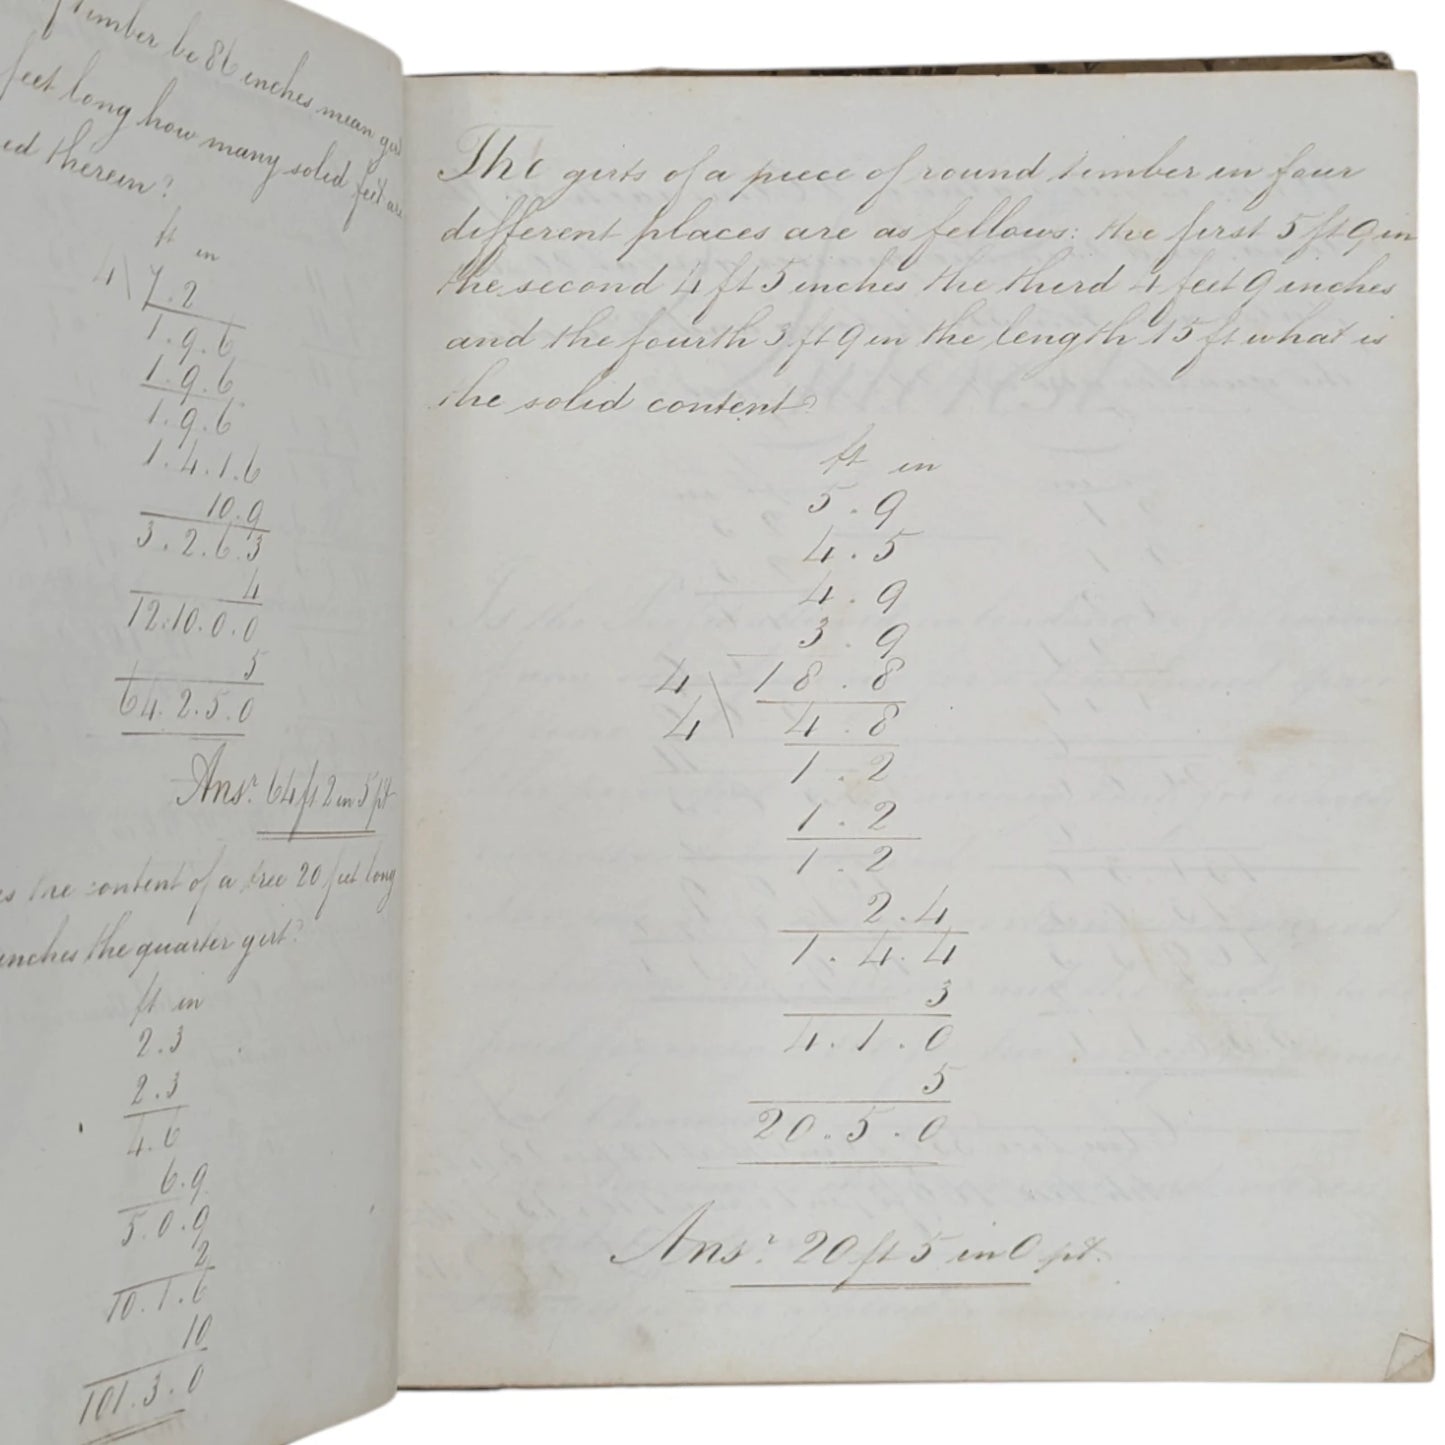 timber be 86 inches mean girt
feet long how many solid feet are
therein?
ft in
4 \ 7.2
1.9.6
1.9.6
1.9.6
1.4.1.6
10.9
3.2.6.3
4
12.10.0.0
5
64.2.5.0
Ansr. 64 ft 2 in 5 pt
the content of a tree 20 feet long
inches the quarter girt?
ft in
2.3
2.3
4.6
6.9
5.0.9
2
10.1.6
10
101.3.0
The girts of a piece of round timber in four
different places are as fellows: the first 5 ft 9 in
the second 4 ft 5 inches the third 4 feet 9 inches
and the fourth 3 ft 9 in the length 15 ft what is
the solid content?
ft in
5.9
4.5
4.9
3.9
4 \ 18.8
4 \ 4.8
1.2
1.2
1.2
2.4
1.4.4
3
4.1.0
5
20.5.0
Ansr. 20 ft 5 in 0 pt.